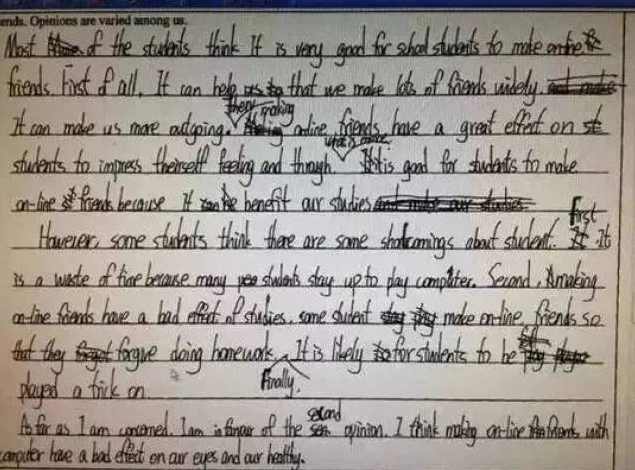 ends. Opinions are varied among us.
Most of the students think It is very good for school students to make on-line
friends. First of all, It can help us that we make lots of friends widely.
It can make us more outgoing. then, making on-line friends have a great effect on
students to impress theirself feeling and through. what is more It is good for students to make
on-line friends because it can be benefit our studies
However, some students think there are some shotcomings about student. First It
is a waste of time because many students stay up to play computer. Second, making
on-line friends have a bad effect of studies. some student make on-line friends so
that they forgive doing homework. Finally. It is likely for students to be
played a trick on.
As far as I am concerned. I am in favour of the second opinion. I think making on-line friends with
computer have a bad effect on our eyes and our healthy.